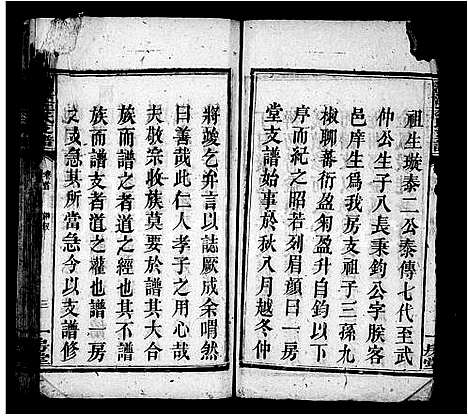 祖生璇泰二公泰傳七代至武
仲公生子八長秉鈞公字朕客
邑庠生爲我房支祖子三孫九
椒聊蕃衍盈匊盈升自鈞以下
序而紀之昭若列眉顏曰一房
堂支譜始事於秋八月越冬仲
將竣乞弁言以誌厥成余喟然
曰善哉此仁人孝子之用心哉
夫敬宗收族莫要於譜其大合
族而譜之者道之經也其不譜
族而譜支者道之權也譜一房
支或急其所當急今以支譜修
一房堂